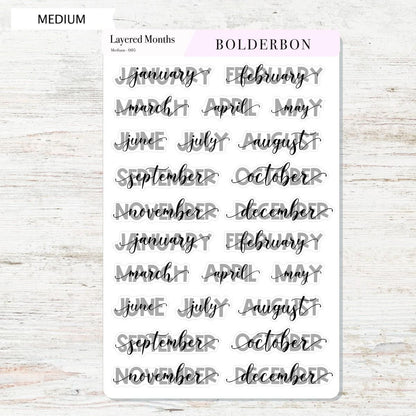 MEDIUM
Layered Months
BOLDERBON
Medium - 005
JANUARY january FEBRUARY february
MARCH march APRIL april MAY may
JUNE june JULY july AUGUST august
SEPTEMBER september OCTOBER october
NOVEMBER november DECEMBER december
JANUARY january FEBRUARY february
MARCH march APRIL april MAY may
JUNE june JULY july AUGUST august
SEPTEMBER september OCTOBER october
NOVEMBER november DECEMBER december